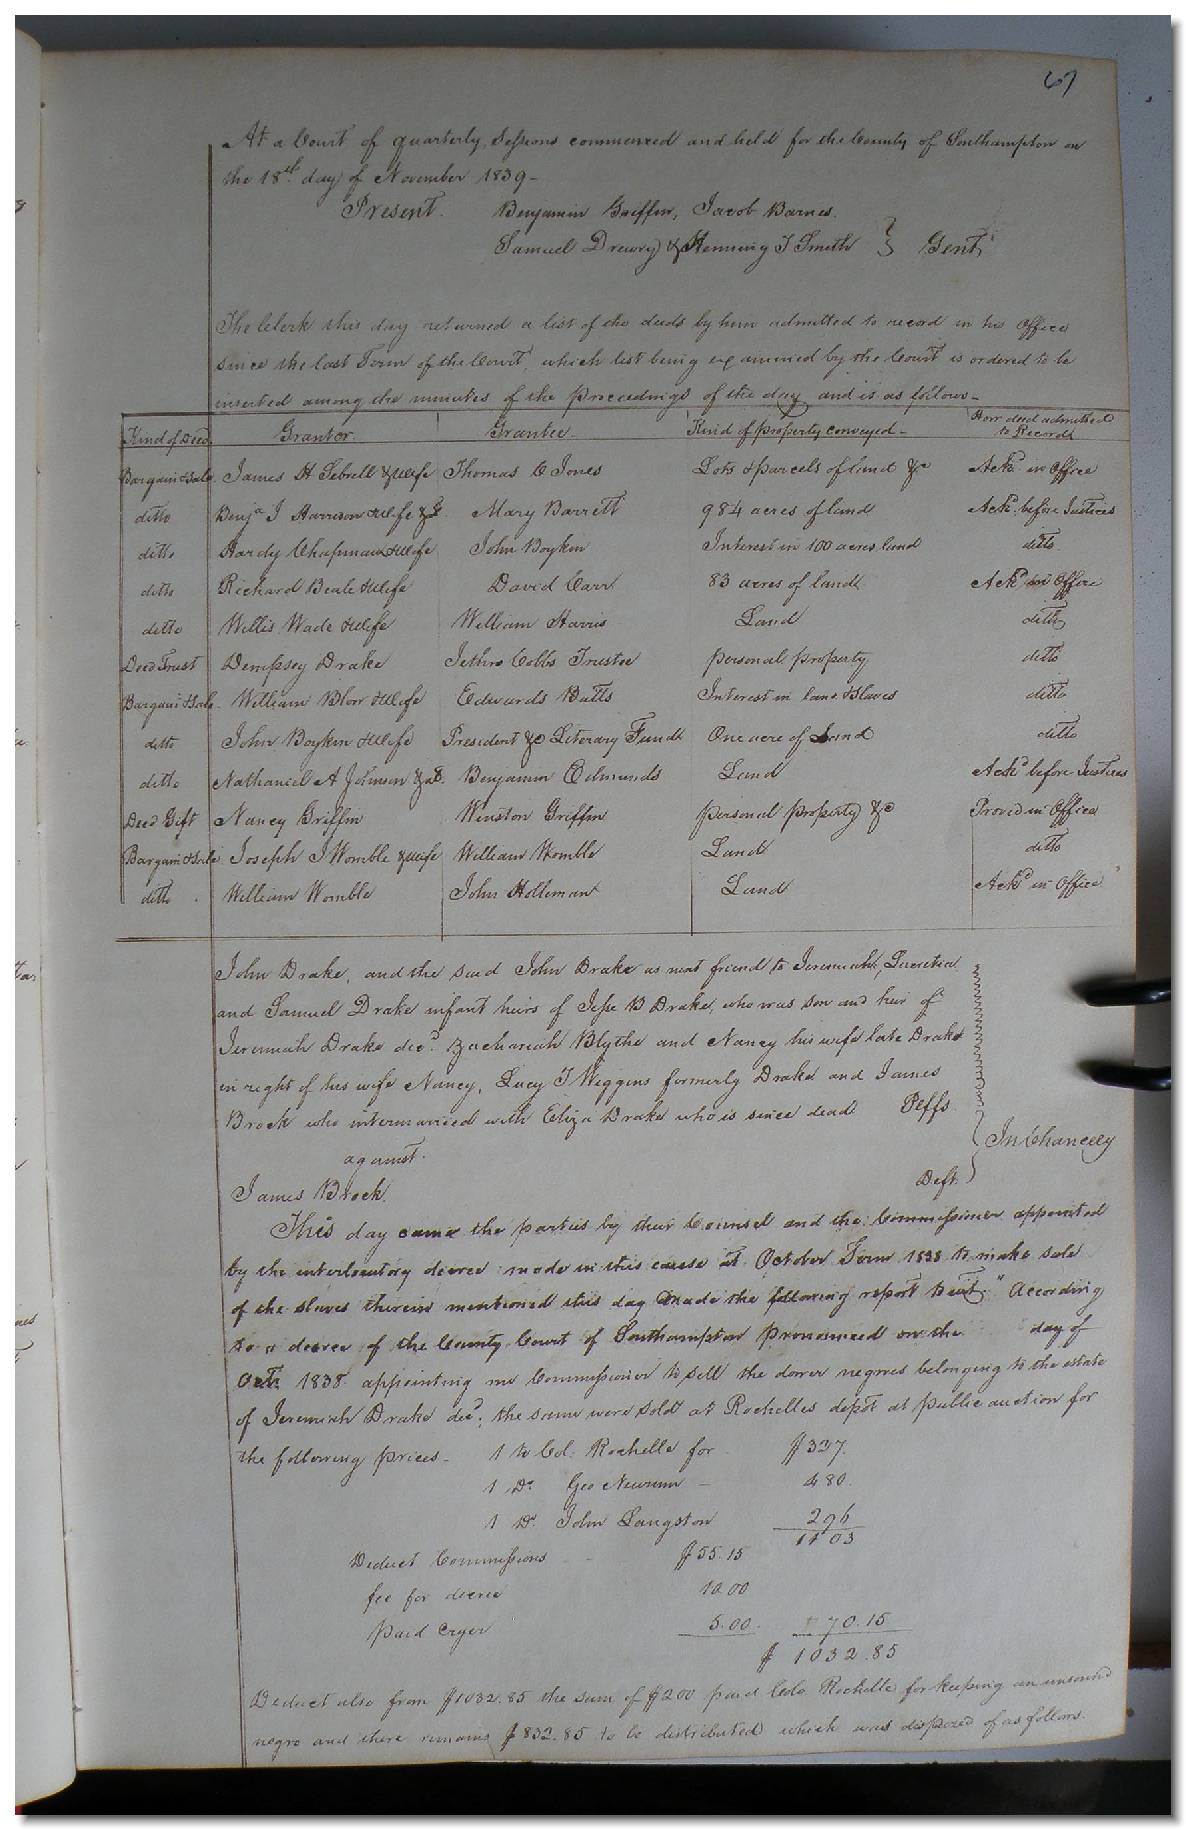 67
At a Court of quarterly Sessions commenced and held for the County of Southampton on
the 18th day of November 1839-
Present. Benjamin Griffin, Jacob Barnes.
Samuel Drewry & Henning T Smith } Gent
The Clerk this day returned a list of the deeds by him admitted to record in his Office
since the last Term of the Court, which list being examined by the Court is ordered to be
inserted among the minutes of the proceedings of the day and is as follows-
Kind of Deed Grantor. Grantee. Kind of property conveyed- How deed admitted to Record
Bargain & Sale. James H Sebrell & Wife Thomas C Jones Lots & parcels of land &c Ackd in Office
ditto Benja J Harrison & Wife &c Mary Barrett 984 acres of land Ackd before Justices
ditto Hardy Chapman & Wife John Boykin Interest in 100 acres land ditto.
ditto Richard Beale & Wife David Carr 83 acres of land Ackd in Office
ditto Willis Wade & Wife William Harris Land ditto
Deed Trust Dempsey Drake Jethro Cobbs Trustee personal property ditto
Bargain & Sale. William Blow & Wife Edwards Butts Interest in land & Slaves ditto
ditto John Boykin & Wife President &c Literary Fund One acre of Land ditto
ditto Nathaniel A Johnson & al. Benjamin Edmunds Land Ackd before Justices
Deed Gift Nancy Griffin Winston Griffin personal property &c Proved in Office
Bargain & Sale Joseph J Womble & Wife William Womble Land ditto
ditto William Womble John Holleman Land Ackd in Office
John Drake, and the said John Drake as next friend to Jeremiah, Lucretia
and Samuel Drake infant heirs of Jesse B Drake, who was son and heir of
Jeremiah Drake decd. Zachariah Blythe and Nancy his wife late Drake
in right of his wife Nancy, Lucy T Wiggins formerly Drake and James
Brock who intermarried with Eliza Drake who is since dead Peffs
against. In Chancery
James Brock. Deft.
This day came the parties by their Counsel and the Commissioner appointed
by the interlocutory decree made in this cause at October Term 1838 to make sale
of the slaves therein mentioned this day made the following report to wit: "According
to a decree of the County Court of Southampton pronounced on the day of
Octr. 1838 appointing me Commissioner to sell the dower negroes belonging to the estate
of Jeremiah Drake decd; the same were sold at Rochelles depot at public auction for
the following prices- 1 to Col. Rochelle for $327.
1 Do. Geo Newsum - 480.
1 Do. John Langston 296
1103
Deduct Commissions - - $55.15
fee for decree 10.00
paid cryer 5.00. 70.15
$ 1032.85
Deduct also from $1032.85 the sum of $200 paid Colo Rochelle for keeping an unsound
negro and there remains $832.85 to be distributed which was disposed of as follows.